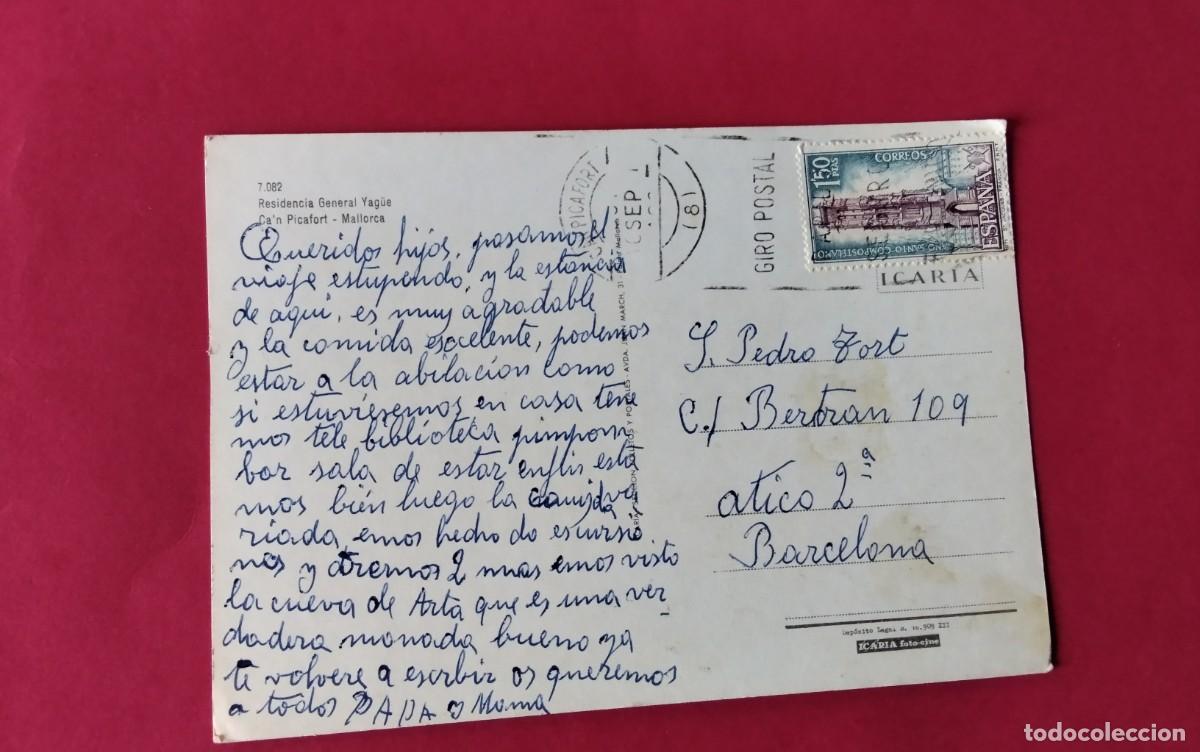 7.082
Residencia General Yagüe
Ca'n Picafort - Mallorca
Queridos hijos, pasamos el
viaje estupendo, y la estancia
de aqui, es muy agradable
y la comida escelente, podemos
estar a la abilación como
si estuviésemos en casa tene
mos tele biblioteca pimpom
bar sala de estar enfin esta
mos bién luego la comida va
riada, emos hecho do escursio
nes y aremos 2 mas emos visto
la cueva de Arta que es una ver
dadera monada bueno ya
te volvere a escrbir os queremos
a todos PAPA y Mama
PICAFORT
SEP
(8)
GIRO POSTAL
1,50 PTAS
CORREOS
ESPAÑA
AÑO SANTO COMPOSTELANO
ICARIA
S. Pedro Fort
C/ Bertran 109
atico 2
Barcelona
Depósito Legal
ICARIA foto-cine
todocoleccion
todocoleccion.net